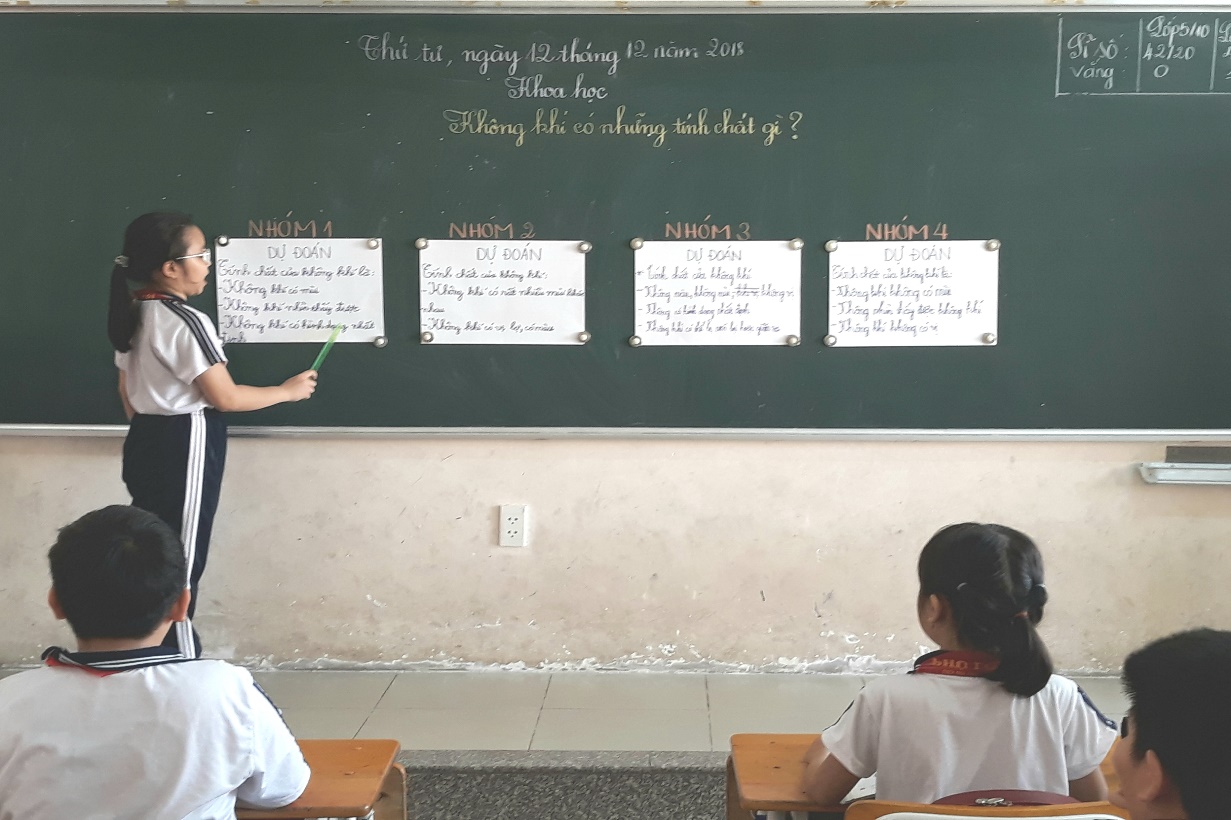 Thứ tư, ngày 12 tháng 12 năm 2018
Khoa học
Không khí có những tính chất gì?
Lớp5/10
Sĩ số: 42/20
Vắng: 0
NHÓM 1
DỰ ĐOÁN
Tính chất của không khí là:
- Không khí có mùi
- Không khí nhìn thấy được
- Không khí có hình dạng nhất
định
NHÓM 2
DỰ ĐOÁN
Tính chất của không khí:
- Không khí có rất nhiều mùi khác
nhau
- Không khí có vị lợ, có màu
NHÓM 3
DỰ ĐOÁN
* Tính chất của không khí
- Không màu, không mùi, không vị
- Không có hình dạng nhất định
- Không khí có thể
NHÓM 4
DỰ ĐOÁN
Tính chất của không khí là:
- Không khí không có mùi
- Không nhìn thấy được không khí
- Không khí không có vị